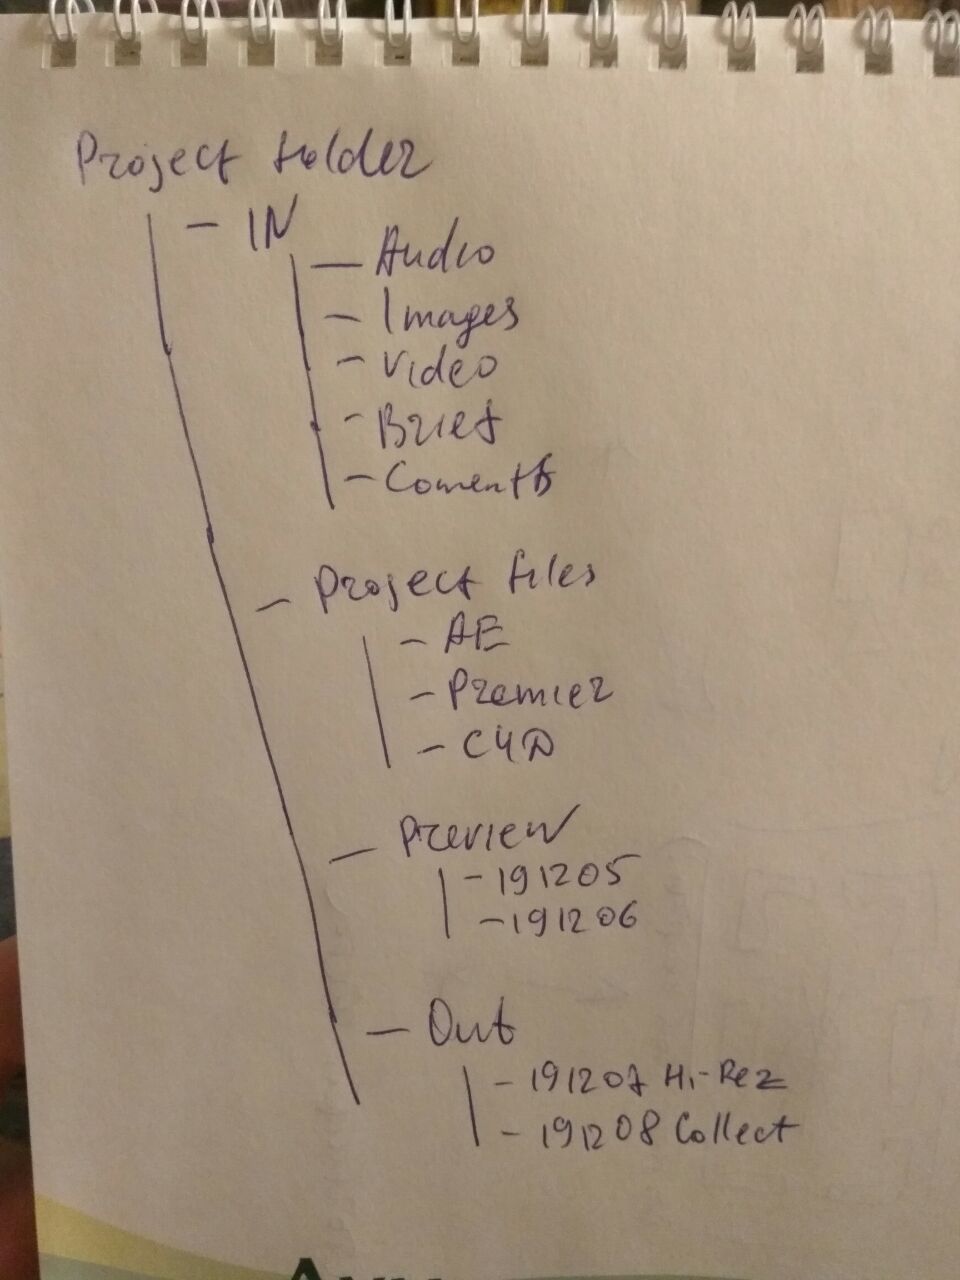 Project folder
- IN
- Audio
- Images
- Video
- Brief
- Coments
- Project files
- AE
- Premier
- C4D
- Preview
- 191205
- 191206
- Out
- 191207 Hi-Rez
- 191208 Collect